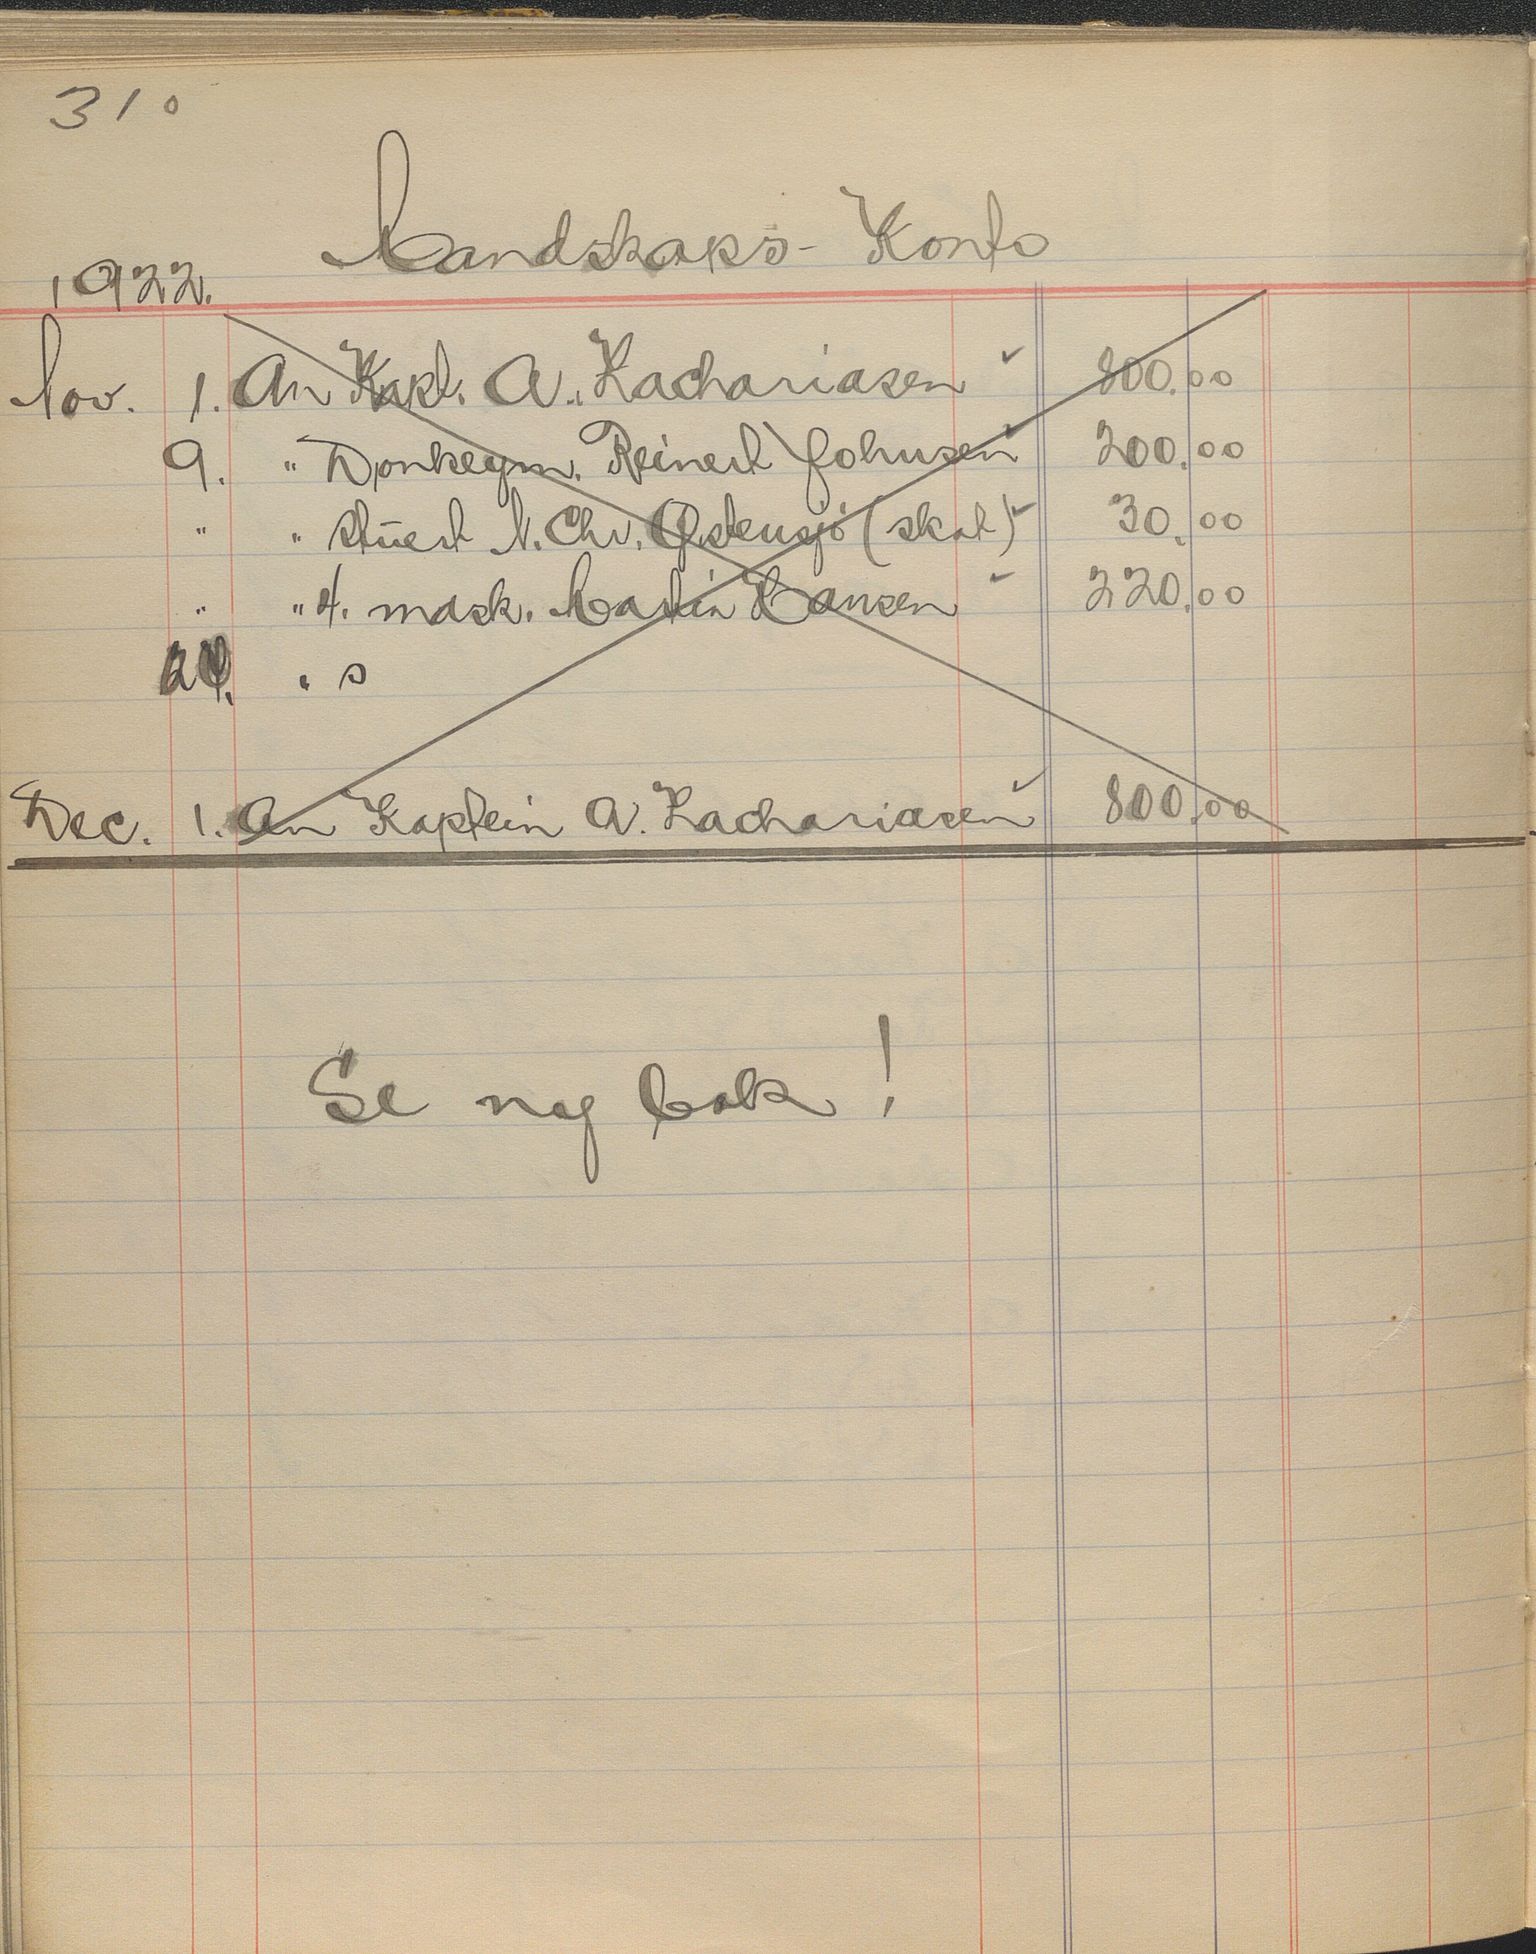 310
Mandskaps-Konto
1922.
Nov. 1. An Kapt. A. Zachariasen ✓ 800.00
9. " Donkeym. Reinert Johnsen ✓ 200.00
" " Stuert N. Chr. Østensjö (skat) ✓ 30.00
" " 4. mask. Martin Hansen ✓ 220.00
24. " s
Dec. 1. An Kaptein A. Zachariasen ✓ 800.00
Se ny bok!